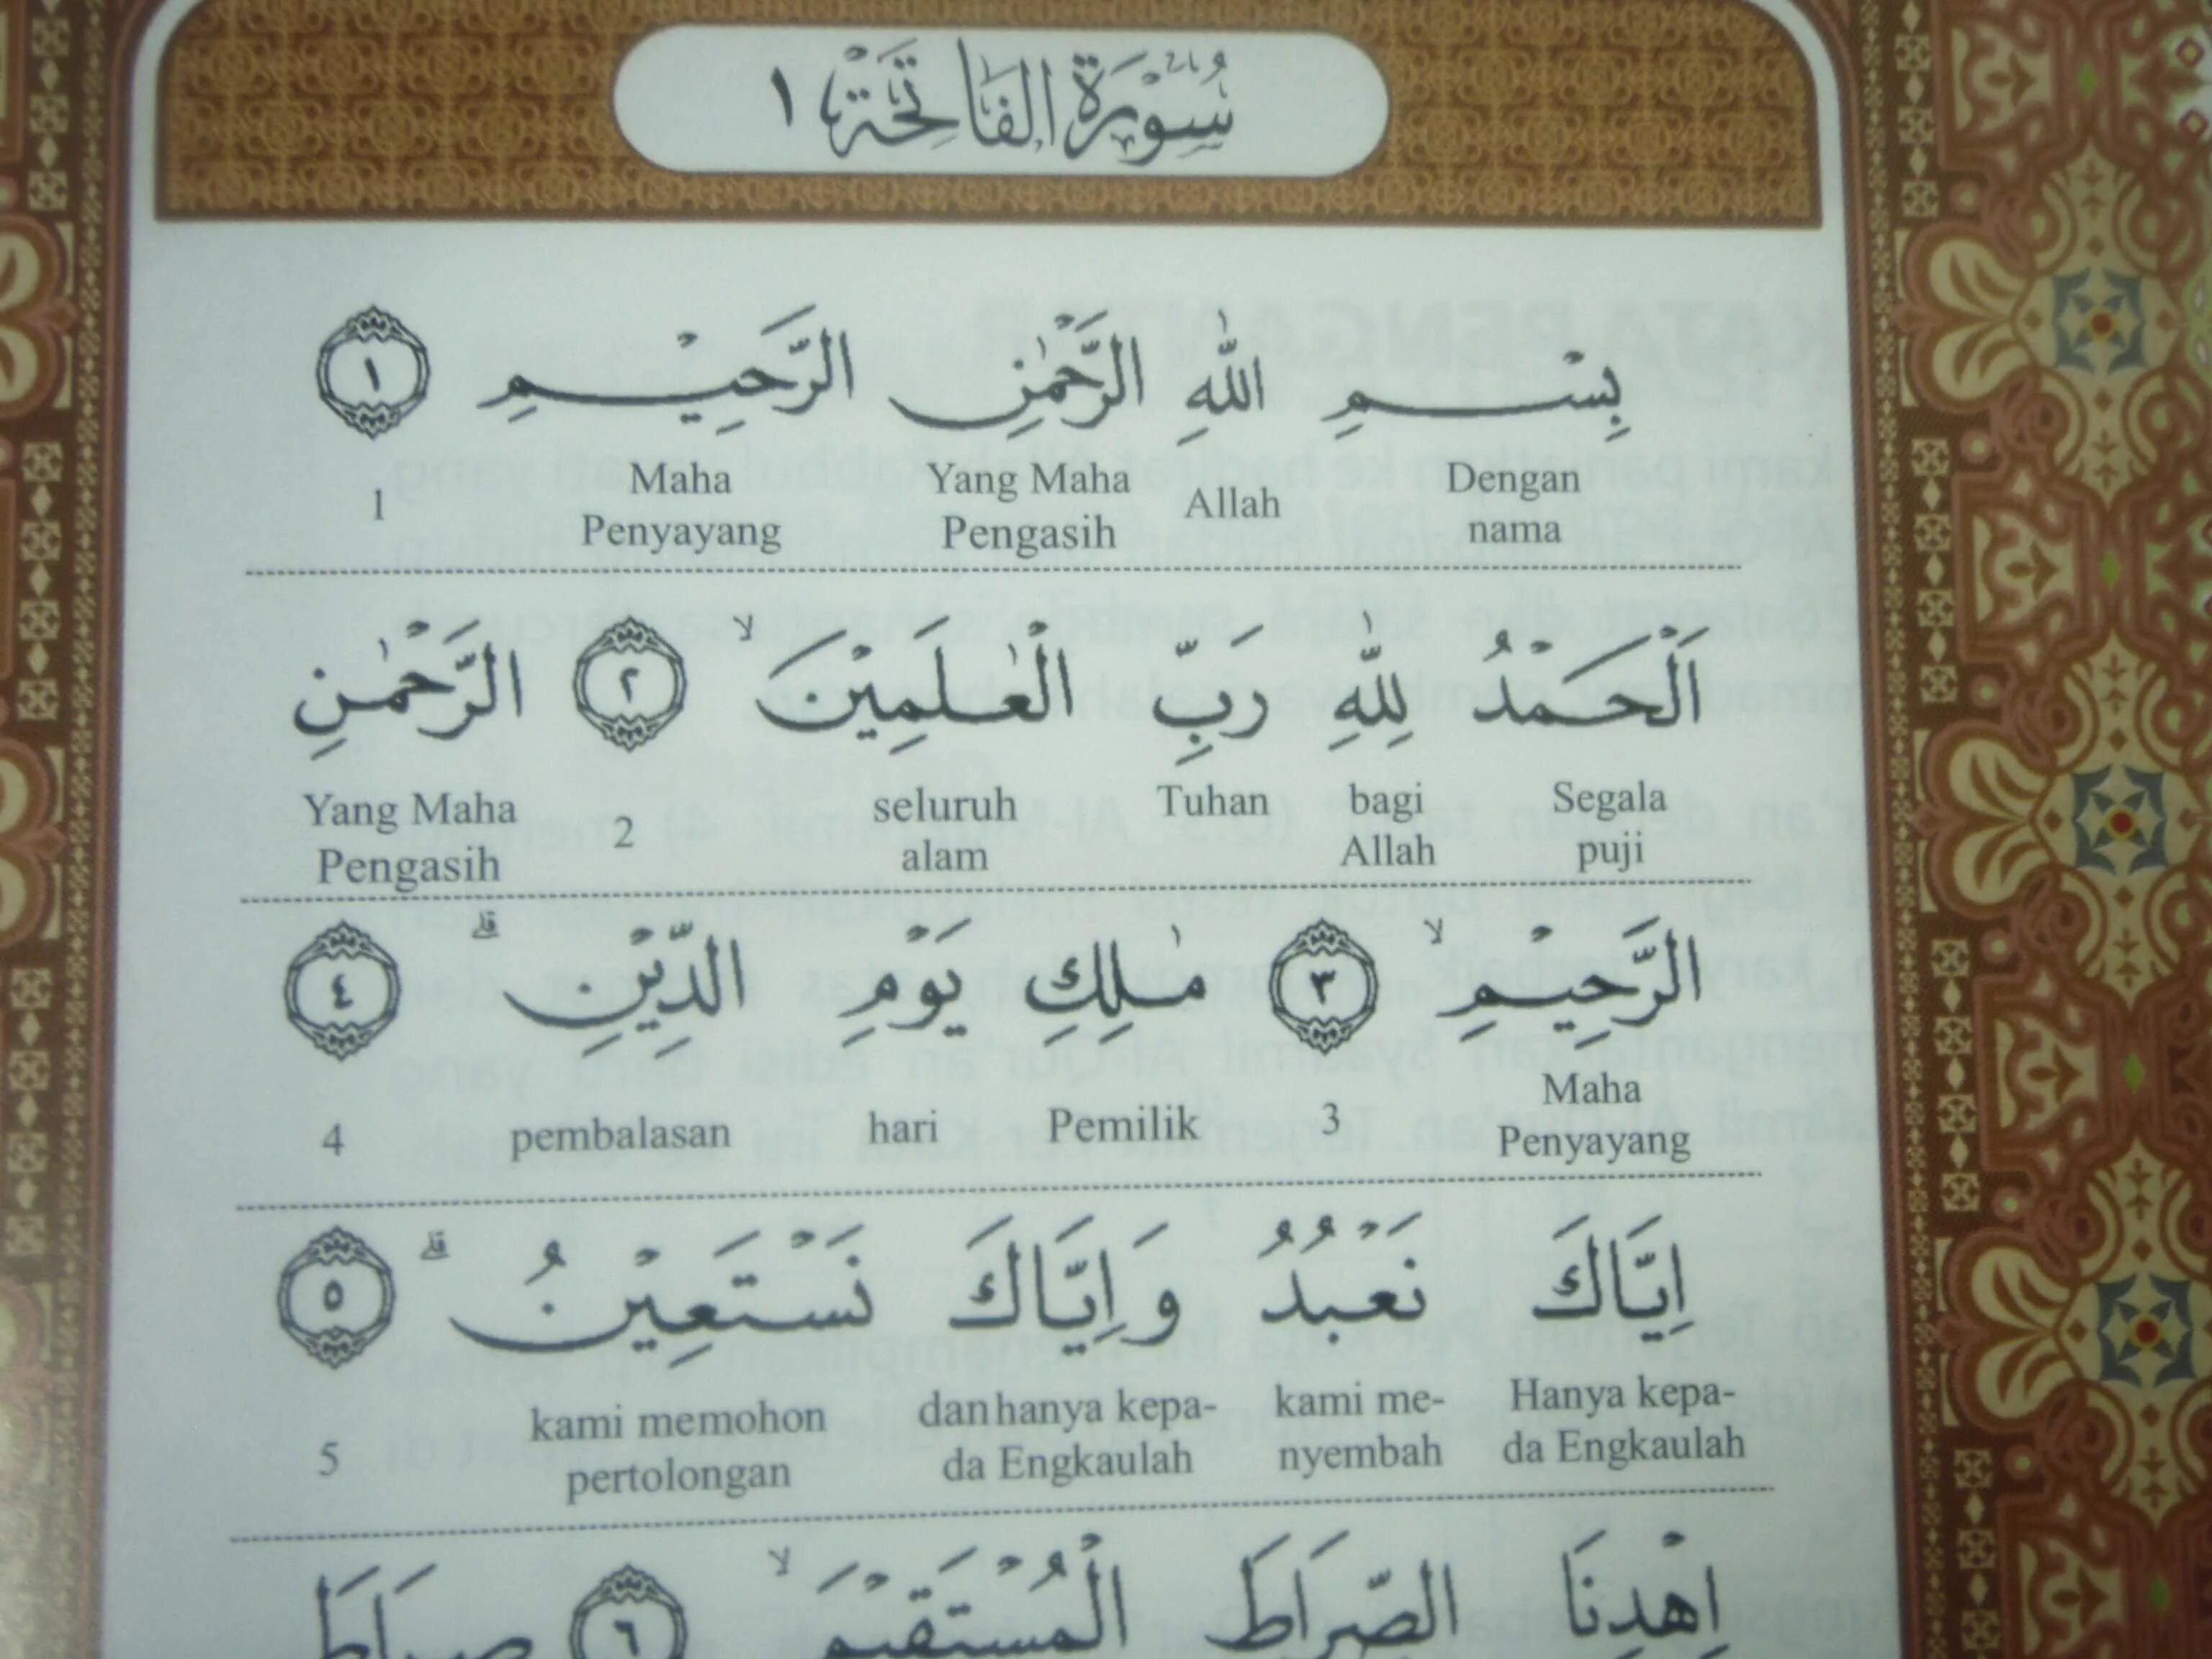 سُوْرَةُ الْفَاتِحَةِ ١
بِسْــــمِ اللّٰهِ الرَّحْمٰنِ الرَّحِيْـــــمِ ١
Dengan nama Allah Yang Maha Pengasih Maha Penyayang 1
اَلْحَـمْدُ لِلّٰهِ رَبِّ الْعٰلَمِيْنَ ۙ ٢ الرَّحْمٰنِ
Segala puji bagi Allah Tuhan seluruh alam 2 Yang Maha Pengasih
الرَّحِيْـمِ ۙ ٣ مٰلِكِ يَوْمِ الدِّيْنِ ۗ ٤
Maha Penyayang 3 Pemilik hari pembalasan 4
اِيَّاكَ نَعْبُدُ وَاِيَّاكَ نَسْتَعِيْنُ ۗ ٥
Hanya kepa-da Engkaulah kami me-nyembah dan hanya kepa-da Engkaulah kami memohon pertolongan 5
اِهْدِنَا الصِّرَاطَ الْمُسْتَقِيْمَ ۙ ٦ صِرَاطَ